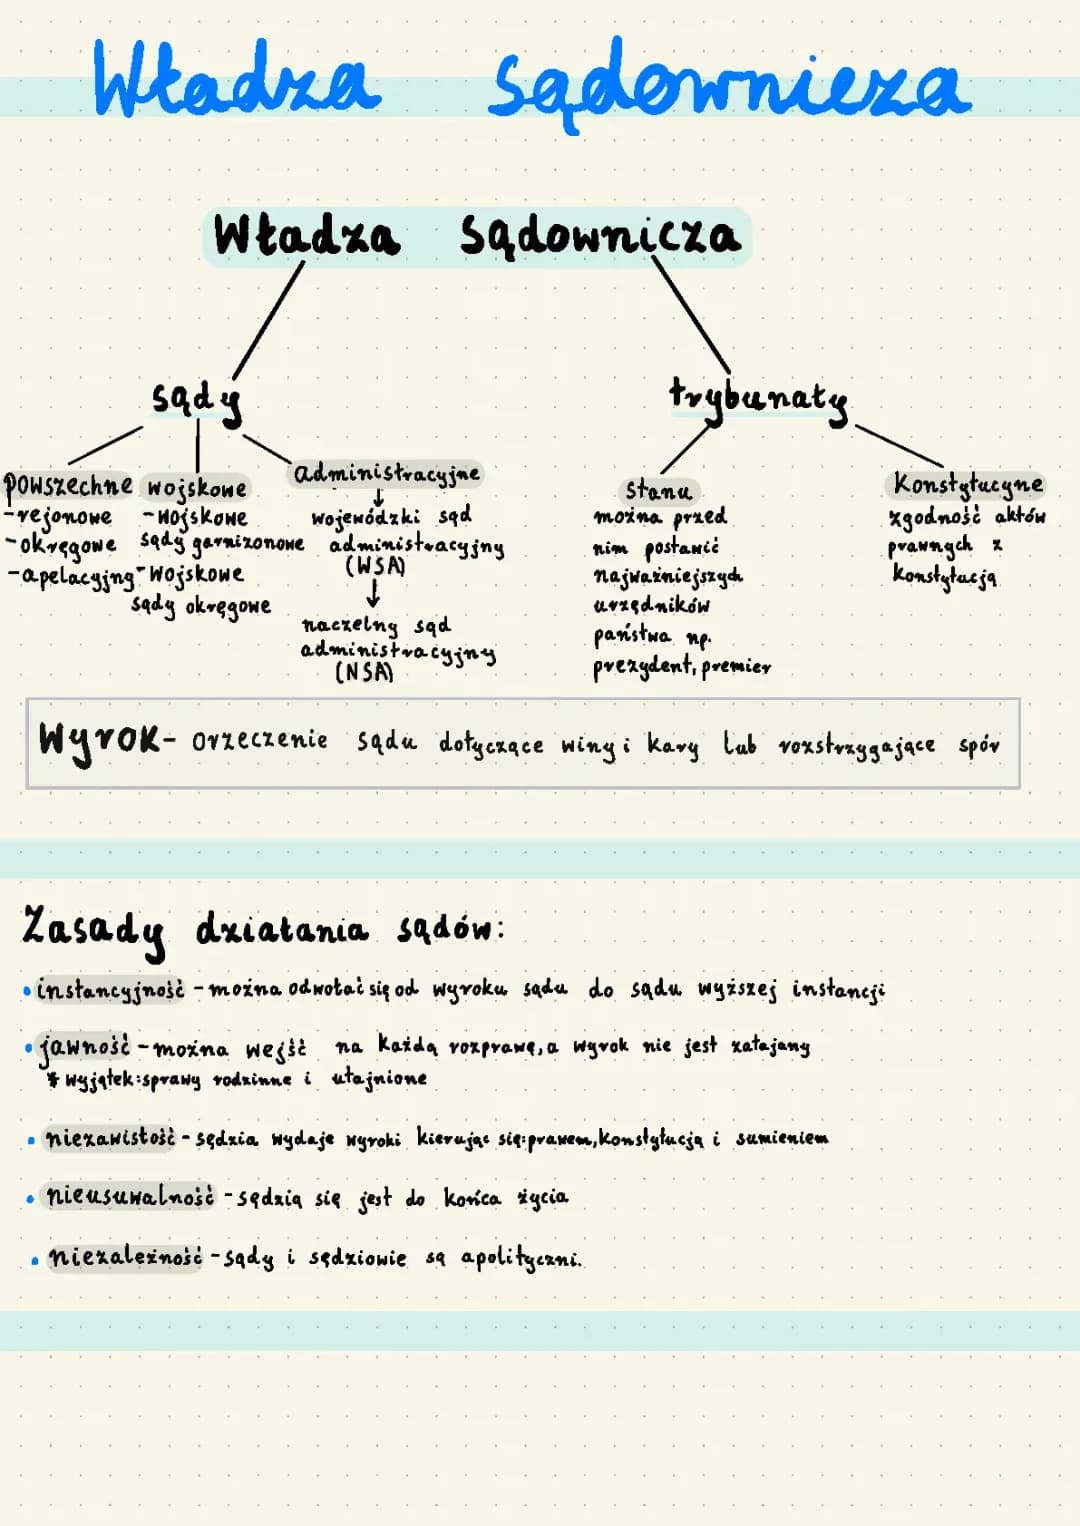 Władza sądownicza
Władza Sądownicza
sądy
trybunały
powszechne
-rejonowe
-okręgowe
-apelacyjny
wojskowe
-wojskowe
sądy garnizonowe
-wojskowe
sądy okręgowe
administracyjne
↓
wojewódzki sąd
administracyjny
(WSA)
↓
naczelny sąd
administracyjny
(NSA)
stanu
można przed
nim postawić
najważniejszych
urzędników
państwa np.
prezydent, premier
Konstytucyjne
zgodność aktów
prawnych z
konstytucją
Wyrok- orzeczenie sądu dotyczące winy i kary lub rozstrzygające spór
Zasady działania sądów:
• instancyjność - można odwołać się od wyroku sądu do sądu wyższej instancji
• jawność - można wejść na każdą rozprawę, a wyrok nie jest zatajany
* wyjątek: sprawy rodzinne i utajnione
• niezawistość - sędzia wydaje wyroki kierując się: prawem, konstytucją i sumieniem
• nieusuwalność - sędzią się jest do końca życia
• niezależność - sądy i sędziowie są apolityczni.